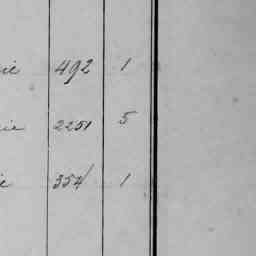 ie 492 1
ie 2251 5
e 354 1